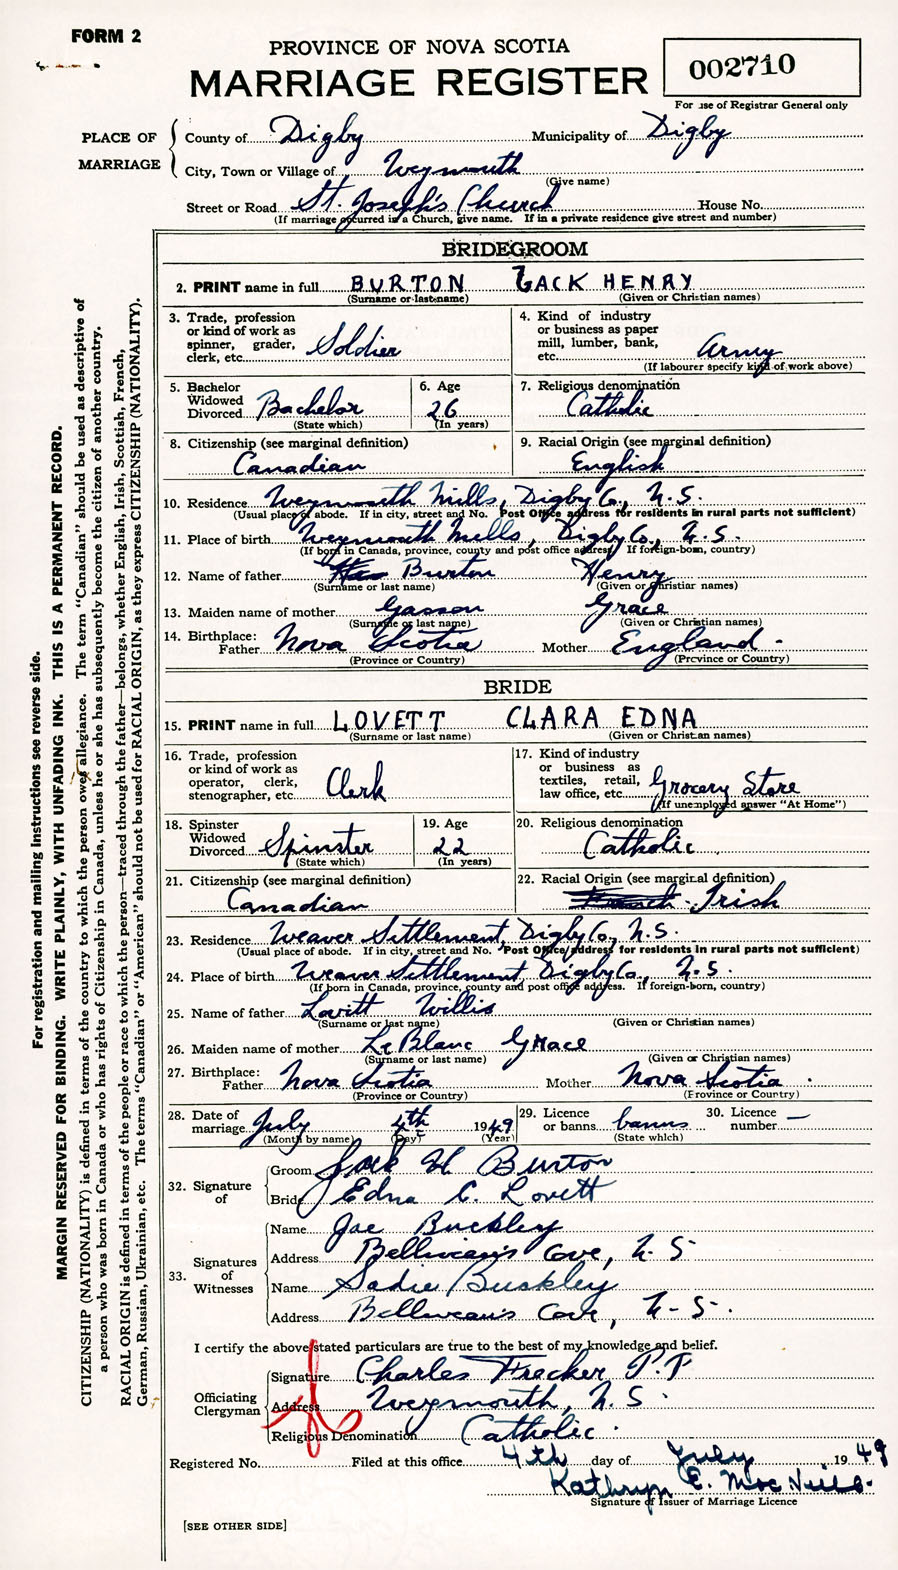 FORM 2
PROVINCE OF NOVA SCOTIA
MARRIAGE REGISTER
002710
For use of Registrar General only
PLACE OF MARRIAGE
County of Digby Municipality of Digby
City, Town or Village of Weymouth
(Give name)
Street or Road St. Joseph's Church House No.
(If marriage occurred in a Church, give name. If in a private residence give street and number)
BRIDEGROOM
2. PRINT name in full BURTON JACK HENRY
(Surname or last name) (Given or Christian names)
3. Trade, profession or kind of work as spinner, grader, clerk, etc. Soldier
4. Kind of industry or business as paper mill, lumber, bank, etc. Army
(If labourer specify kind of work above)
5. Bachelor Widowed Divorced Bachelor
(State which)
6. Age 26
(In years)
7. Religious denomination Catholic
8. Citizenship (see marginal definition) Canadian
9. Racial Origin (see marginal definition) English
10. Residence Weymouth Mills, Digby Co., N.S.
(Usual place of abode. If in city, street and No. Post Office address for residents in rural parts not sufficient)
11. Place of birth Weymouth Mills, Digby Co., N.S.
(If born in Canada, province, county and post office address. If foreign-born, country)
12. Name of father Burton Henry
(Surname or last name) (Given or Christian names)
13. Maiden name of mother Gasson Grace
(Surname or last name) (Given or Christian names)
14. Birthplace: Father Nova Scotia Mother England
(Province or Country) (Province or Country)
BRIDE
15. PRINT name in full LOVETT CLARA EDNA
(Surname or last name) (Given or Christian names)
16. Trade, profession or kind of work as operator, clerk, stenographer, etc. Clerk
17. Kind of industry or business as textiles, retail, law office, etc. Grocery Store
(If unemployed answer "At Home")
18. Spinster Widowed Divorced Spinster
(State which)
19. Age 22
(In years)
20. Religious denomination Catholic
21. Citizenship (see marginal definition) Canadian
22. Racial Origin (see marginal definition) French - Irish
23. Residence Weaver Settlement, Digby Co., N.S.
(Usual place of abode. If in city, street and No. Post Office address for residents in rural parts not sufficient)
24. Place of birth Weaver Settlement, Digby Co., N.S.
(If born in Canada, province, county and post office address. If foreign-born, country)
25. Name of father Lovitt Willis
(Surname or last name) (Given or Christian names)
26. Maiden name of mother LeBlanc Grace
(Surname or last name) (Given or Christian names)
27. Birthplace: Father Nova Scotia Mother Nova Scotia
(Province or Country) (Province or Country)
28. Date of marriage July 4th 1949
(Month by name) (Day) (Year)
29. Licence or banns banns
(State which)
30. Licence number —
32. Signature of
Groom Jack H Burton
Bride Edna C. Lovett
33. Signatures of Witnesses
Name Joe Buckley
Address Belliveau's Cove, N.S
Name Sadie Buckley
Address Belliveau's Cove, N-S.
I certify the above stated particulars are true to the best of my knowledge and belief.
Officiating Clergyman
Signature Charles Frecker P.P.
Address Weymouth, N.S.
Religious Denomination Catholic.
Registered No. Filed at this office 4th day of July 1949
Kathryn E. MacNeill
Signature of Issuer of Marriage Licence
[SEE OTHER SIDE]
For registration and mailing instructions see reverse side.
MARGIN RESERVED FOR BINDING. WRITE PLAINLY, WITH UNFADING INK. THIS IS A PERMANENT RECORD.
CITIZENSHIP (NATIONALITY) is defined in terms of the country to which the person owes allegiance. The term "Canadian" should be used as descriptive of
a person who was born in Canada or who has rights of Citizenship in Canada, unless he or she has subsequently become the citizen of another country.
RACIAL ORIGIN is defined in terms of the people or race to which the person—traced through the father—belongs, whether English, Irish, Scottish, French,
German, Russian, Ukrainian, etc. The terms "Canadian" or "American" should not be used for RACIAL ORIGIN, as they express CITIZENSHIP (NATIONALITY).